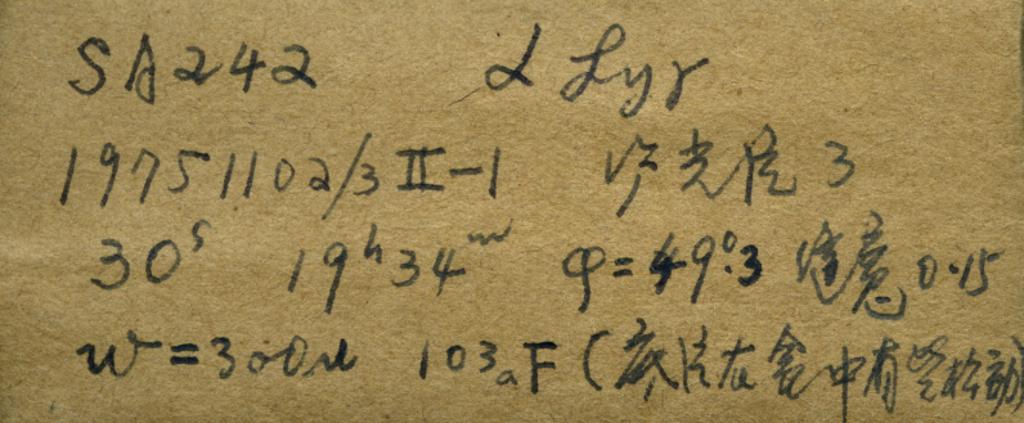 SA242 α Lyr
19751102/3 II-1 光片 3
30ˢ 19ʰ34ᵐ φ=49°.3 缝宽 0.15
w=300μ 103aF (底片在盒中有些松动)